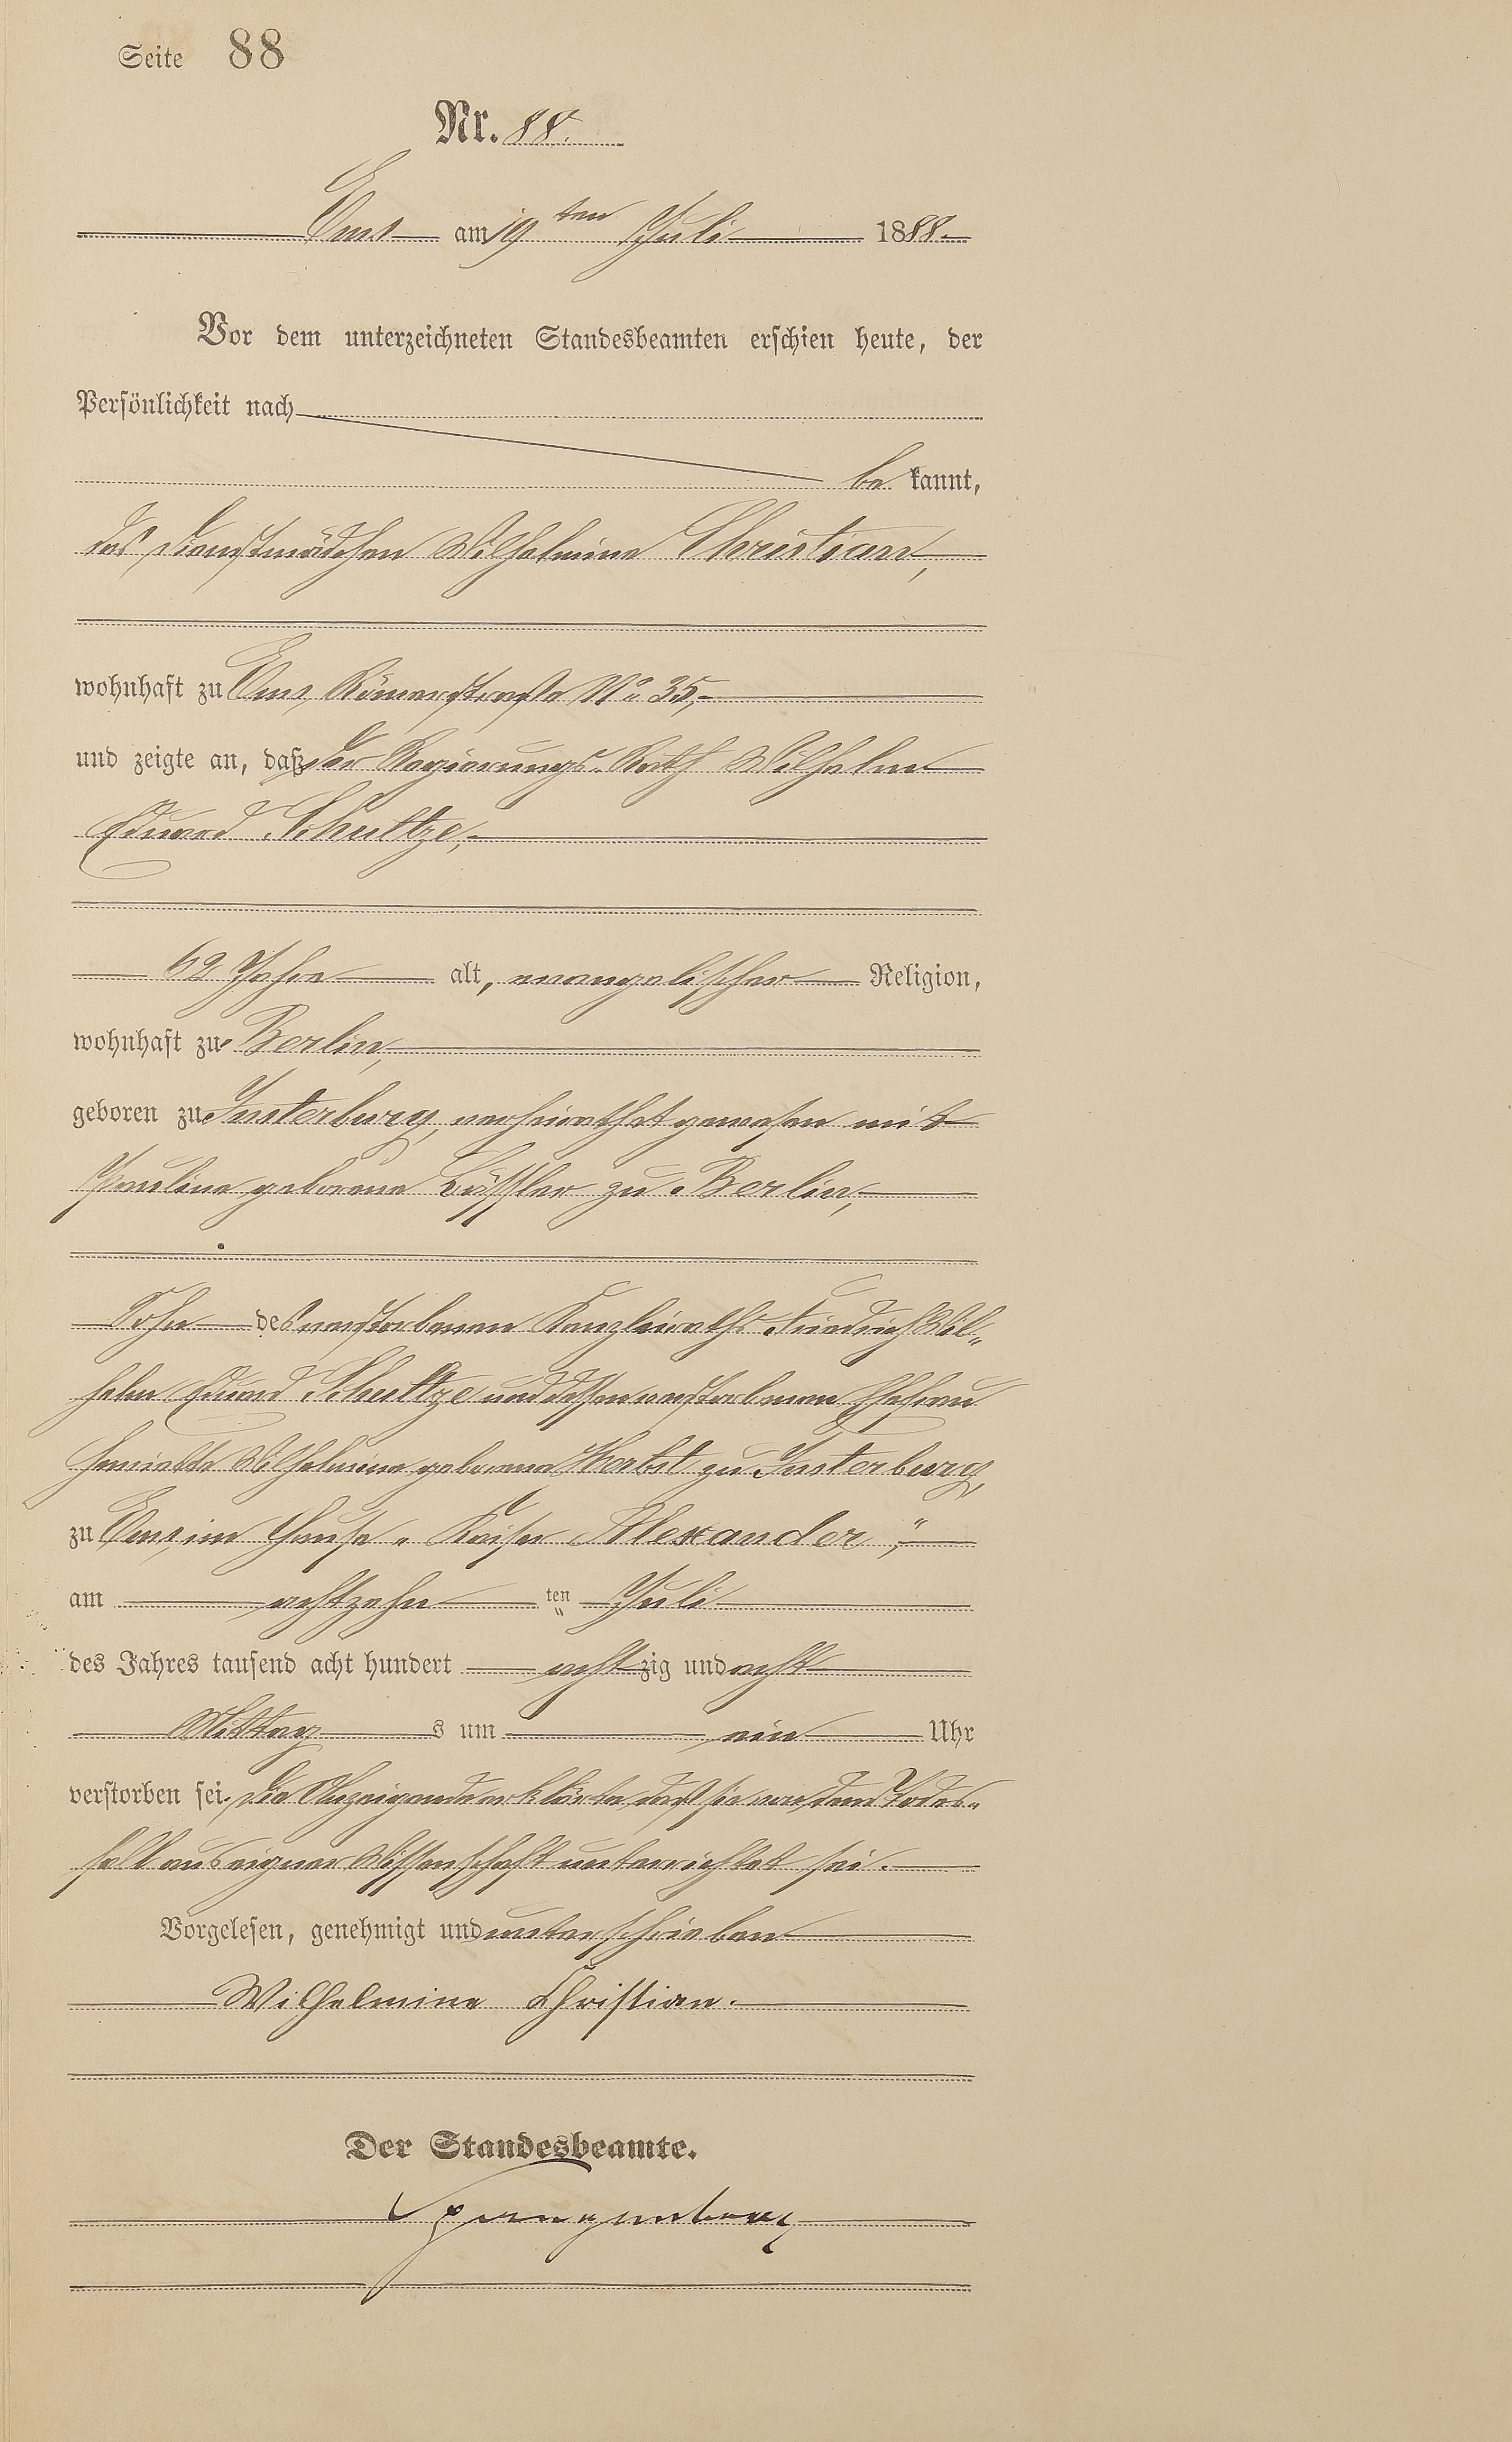 Seite 88
Nr. 88.
Ems am 19ten Juli 1888.
Vor dem unterzeichneten Standesbeamten erschien heute, der
Persönlichkeit nach
be kannt,
das Dienstmädchen Wilhelmine Christian,
wohnhaft zu Ems, Römerstraße No. 35,
und zeigte an, daß der Regierungs-Rath Wilhelm
Eduard Schultze,
62 Jahre alt, evangelischer Religion,
wohnhaft zu Berlin,
geboren zu Insterburg, verheirathet gewesen mit
Pauline geborene Löffler zu Berlin,
Sohn des verstorbenen Kanzleiraths Friedrich Wil-
helm Eduard Schultze und dessen verstorbenen Ehefrau
Henriette Wilhelmine geborene Herbst zu Insterburg,
zu Ems, im Hause „Kaiser Alexander",
am achtzehn ten Juli
des Jahres tausend acht hundert acht zig und acht
Mittag s um ein Uhr
verstorben sei. Die Anzeigende erklärte, daß sie von dem Todes-
fall aus eigner Wissenschaft unterrichtet sei.
Vorgelesen, genehmigt und unterschrieben
Wilhelmine Christian.
Der Standesbeamte.
Spangenberg